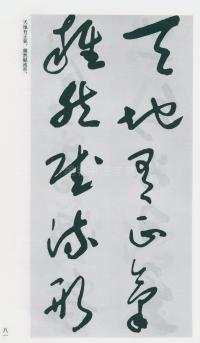 天地有正氣
雜然賦流形
天地有正氣，雜然賦流形。
八一